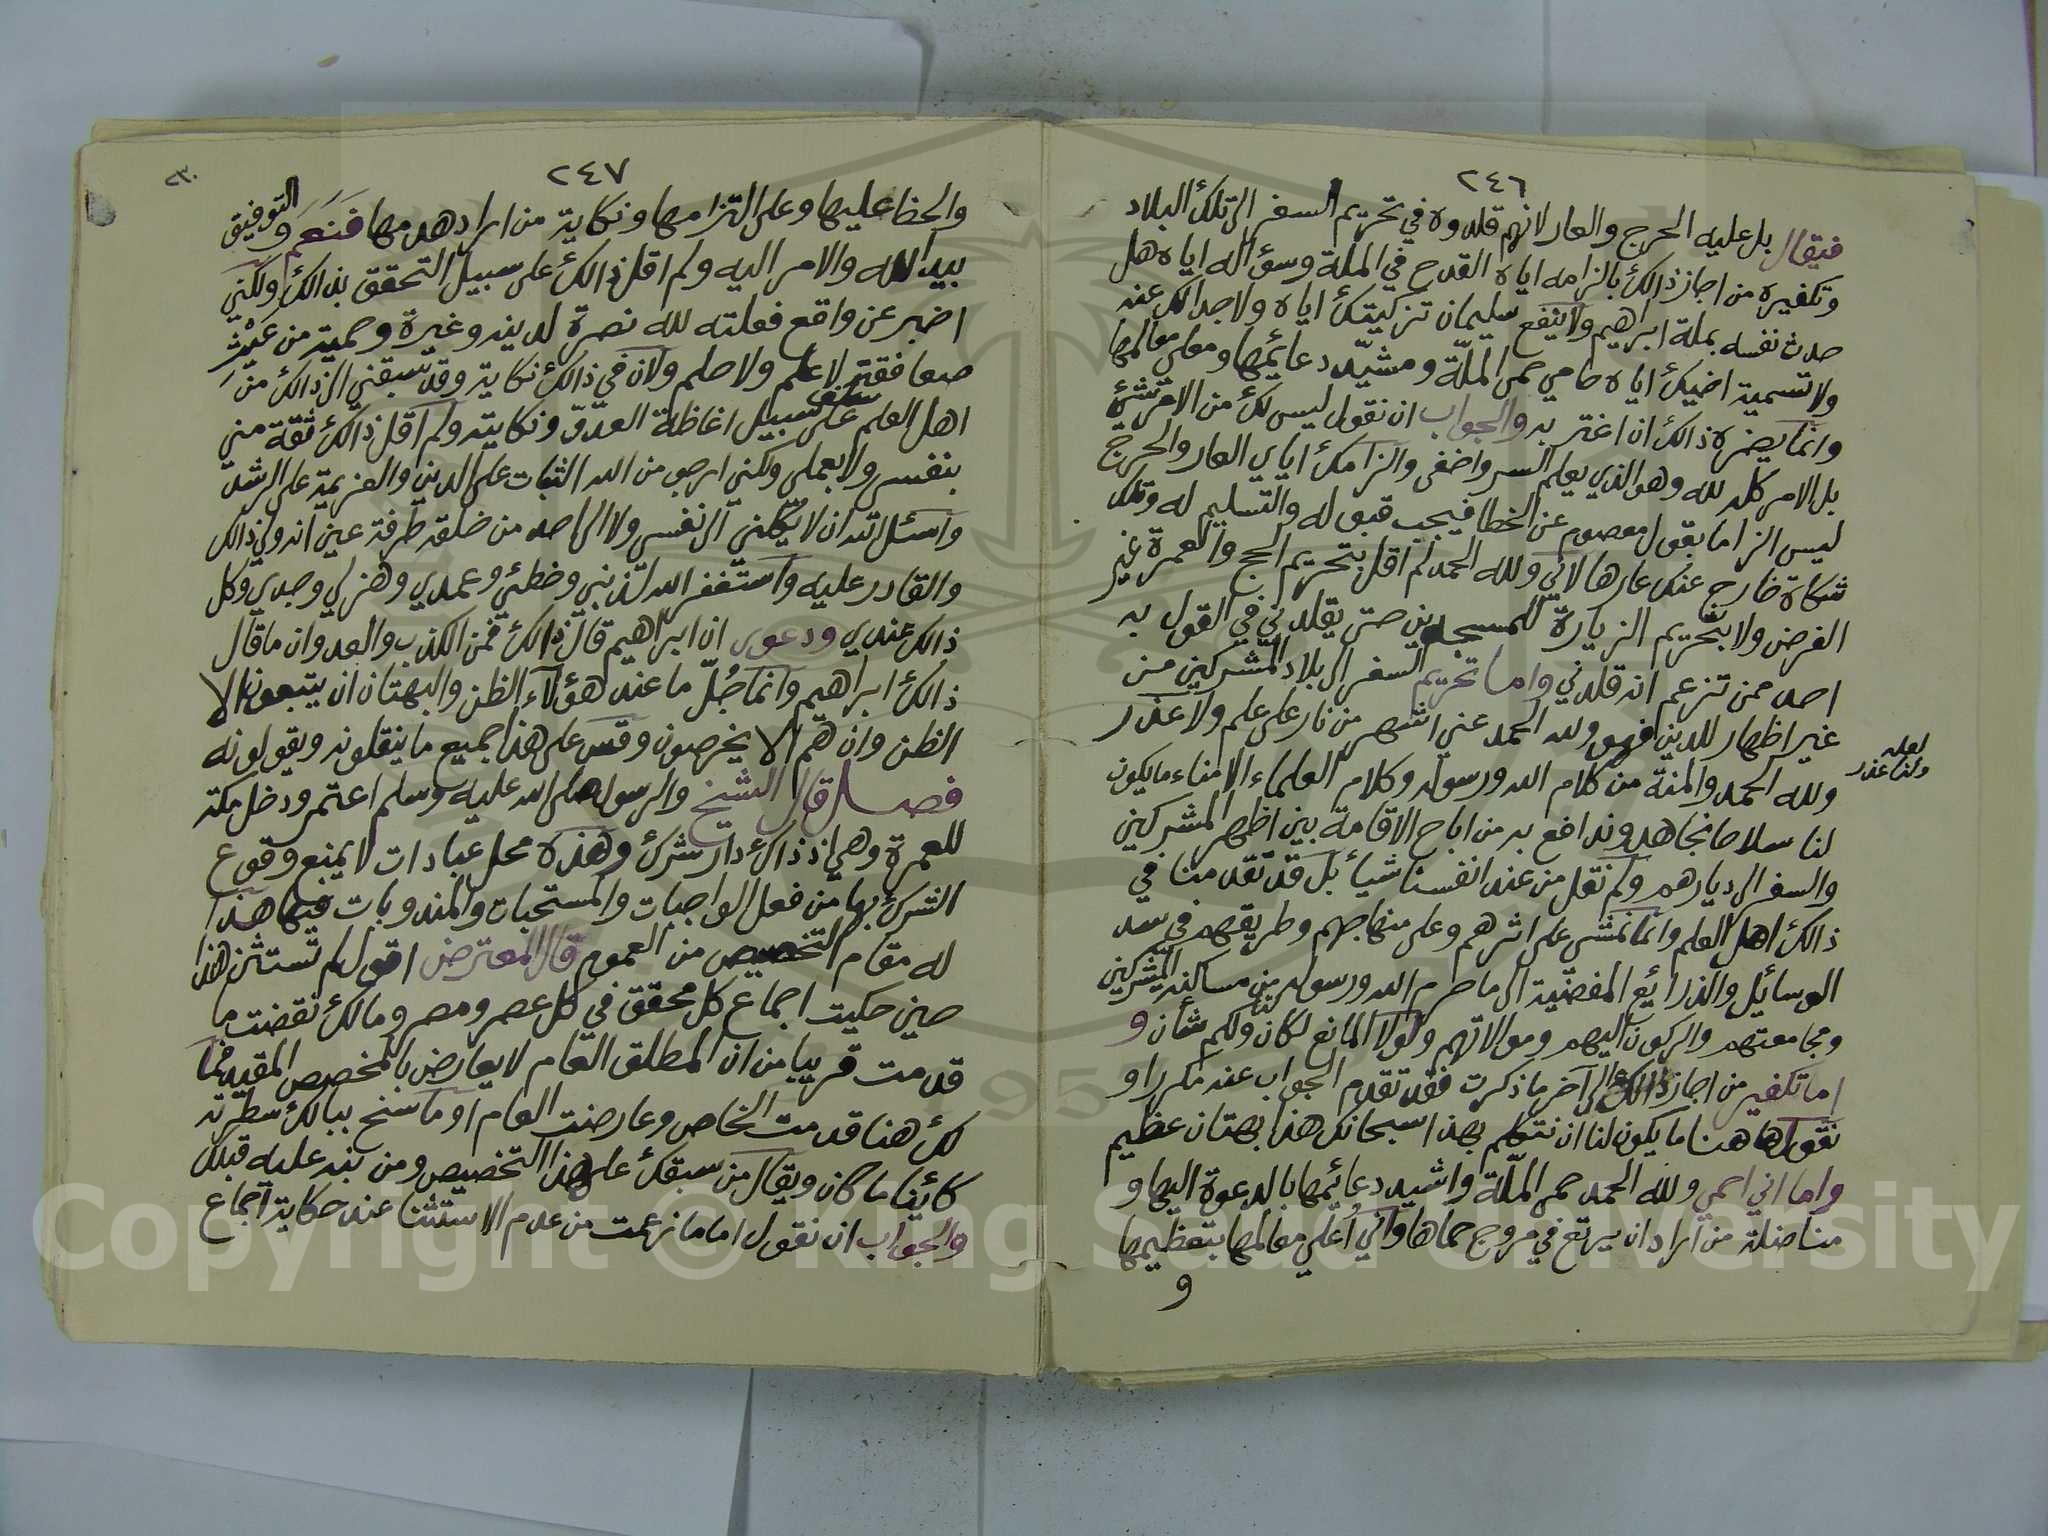 ٢٤٦
فيقال بل عليه الحرج والعار لانهم قلدوه في تحريم السفر الى تلك البلاد
وتكفيره من اجاز ذالك بالزامه اياه القدح في الملة وسؤاله اياه هل
حدث نفسه بملة ابراهيم ولا ينفع سليمان تزكيتك اياه ولا جدالك عنه
ولا تسمية اخيك اياه حامي حمى الملّة ومشيّد دعائمها ومعلي معالمها
وانما يضره ذالك ان اغتر به والجواب ان نقول ليس لك من الامر شئ
بل الامر كله لله وهو الذي يعلم السر واخفى والزامك اياي العار والحرج
ليس الزاما بقول معصوم عن الخطا فيجب قبوله والتسليم له وتلك
شكاة خارج عنك عارها لاني ولله الحمد لم اقل بتحريم الحج والعمرة غير
الفرض ولا بتحريم الزيارة للمسجدين حتى يقلدني في القول به
احد ممن تزعم انه قلدني واما تحريم السفر الى بلاد المشركين من
غير اظهار للدين فهو ولله الحمد عني اشهر من نار على علم ولا عذر
لعله
ولنا عذر
ولله الحمد والمنة من كلام الله ورسوله وكلام العلماء الامناء ما يكون
لنا سلاحا نجاهد وندافع به من اباح الاقامة بين اظهر المشركين
والسفر الى ديارهم ولم نقل من عند انفسنا شيأ بل قد تقدمنا في
ذالك اهل العلم وانما نمشي على اثرهم وعلى منهاجهم وطريقهم في سد
الوسائل والذرائع المفضية الى ما حرم الله ورسوله من مساكنة المشركين
ومجامعتهم والركون اليهم وموالاتهم ولولا المانع لكان لنا ولكم شأن و
اما تكفير من اجاز ذالك الى آخر ما ذكرت فقد تقدم الجواب عنه مكررا و
نقول هاهنا ما يكون لنا ان نتكلم بهذا سبحانك هذا بهتان عظيم
واما اني احمي ولله الحمد حمى الملّة واشيد دعائمها بالدعوة اليها و
مناضلة من اراد ان يرتع في مروج حماها واني اُعلي معالمها بتعظيمها
و
٢٤٧
والحظ عليها وعلى التزامها ونكاية من اراد هدمها فنَعَم والتوفيق
بيد الله والامر اليه ولم اقل ذالك على سبيل التحقق بذالك ولكني
اخبر عن واقع فعلته لله نصرة لدينه وغيرة وحمية من عَيْث
صعافقة لا علم ولا حلم ولان في ذالك نكاية وقد سبقني الى ذالك من
اهل العلم على سبيل اغاظة العدوّ ونكايته ولم اقل ذالك ثقة مني
بنفسي ولا بعملي ولكني ارجو من الله الثبات على الدين والعزيمة على الرشد
واسئل الله ان لا يكلني الى نفسي ولا الى احد من خلقه طرفة عين انه ولي ذالك
والقادر عليه واستغفر الله لذنبي وخطئي وعمدي وهزلي وجدي وكل
ذالك عندي ودعوى ان ابراهيم قال ذالك فمن الكذب والعدوان ما قال
ذالك ابراهيم وانما جُلّ ما عند هؤلاء الظن والبهتان ان يتبعون الا
الظن وان هم الا يخرصون وقس على هذا جميع ما ينقلونه ويقولونه
فصل قال الشيخ والرسول صلى الله عليه وسلم اعتمر ودخل مكة
للعمرة وهي اذ ذاك دار شرك وهذه محل عبادات لا يمنع وقوع
الشرك بها من فعل الواجبات والمستحبات والمندوبات فيها هذا
له مقام التخصيص من العموم قال المعترض اقول لم تستثن هذا
حين حكيت اجماع كل محقق في كل عصر ومصر ومالك نقضت ما
قدمت قريبا من ان المطلق العام لا يعارض بالمخصص المقيد فما
لك هنا قدمت الخاص وعارضت العام اوما سنح ببالك سطرته
كائنا ما كان ويقال من سبقك على هذا التخصيص ومن نبه عليه قبلك
والجواب ان نقول اما ما زعمت من عدم الاستثنا عند حكاية اجماع
Copyright © King Saud University